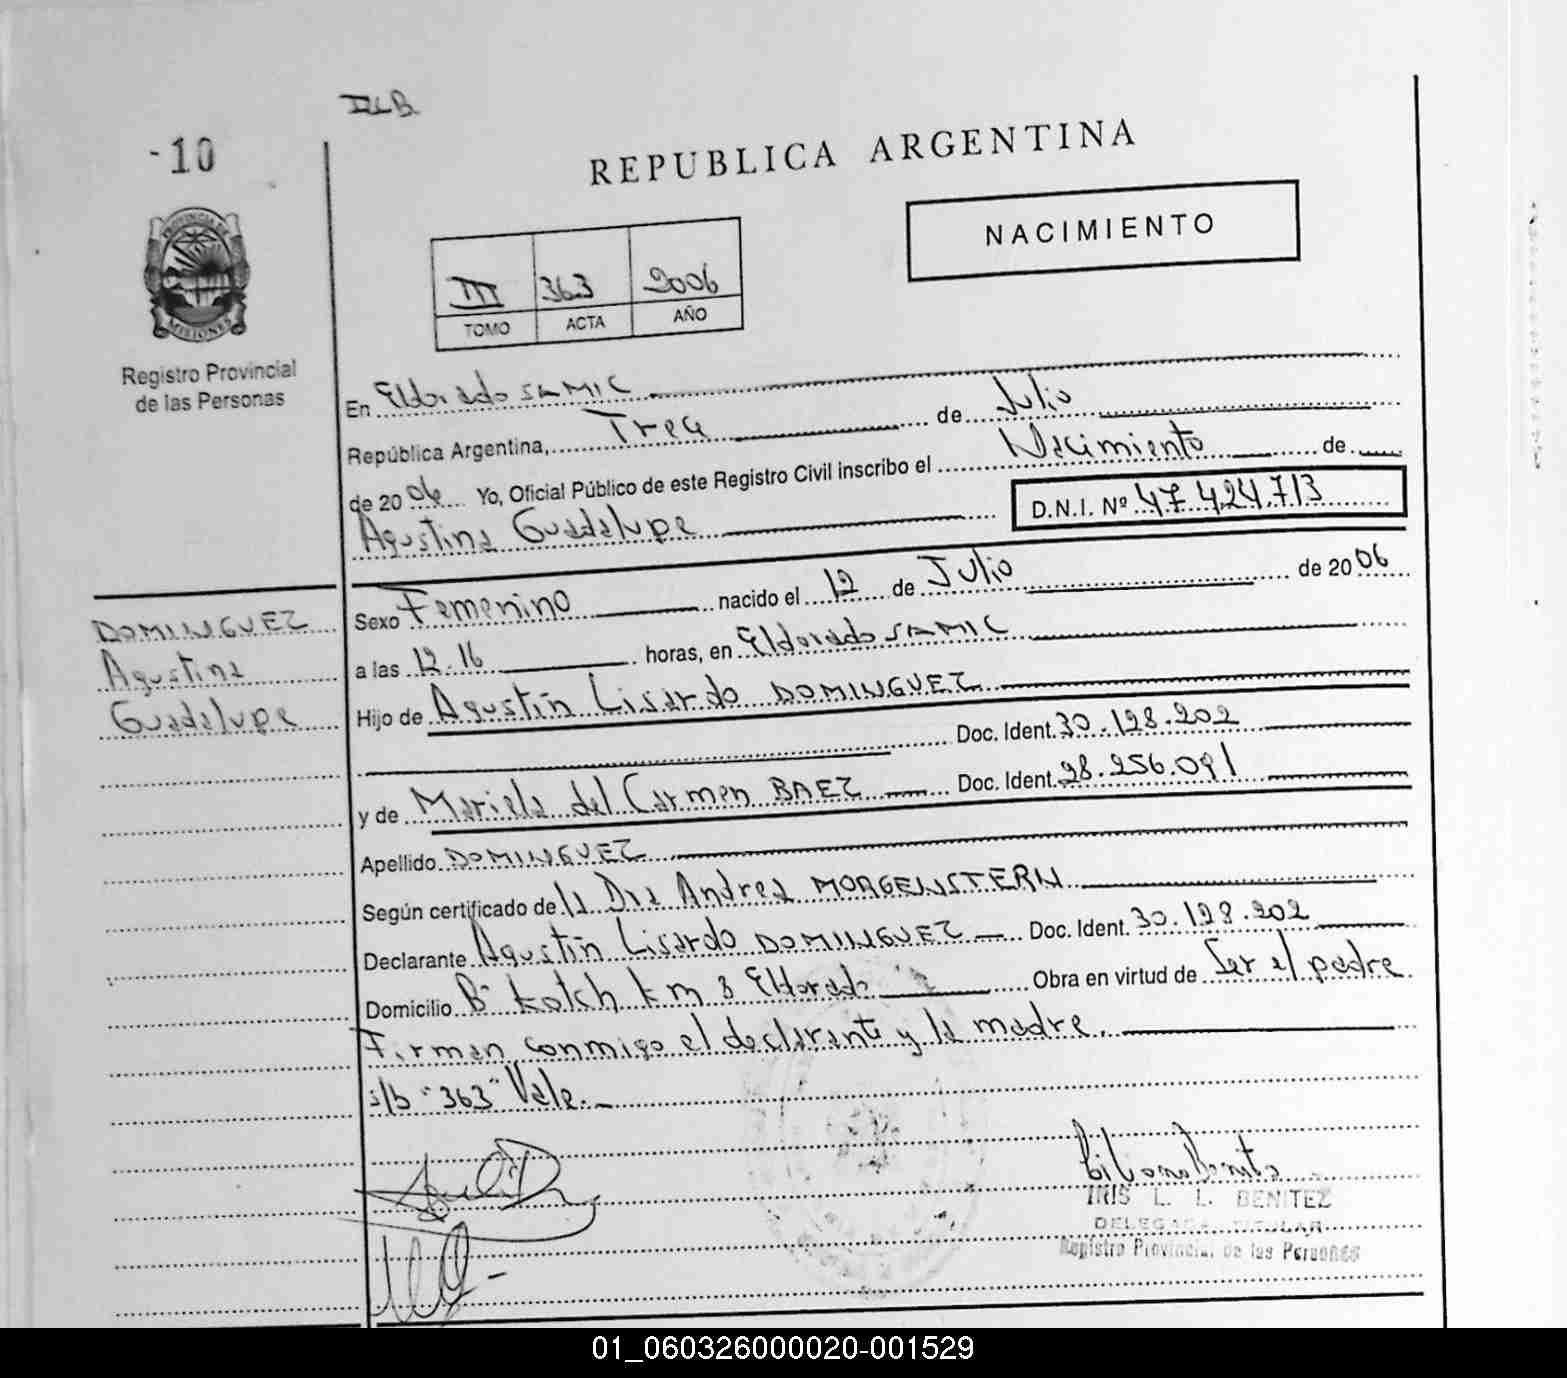 ILB
-10
REPUBLICA ARGENTINA
NACIMIENTO
PROVINCIA DE
MISIONES
III 363 2006
TOMO ACTA AÑO
Registro Provincial
de las Personas
En Eldorado SAMIC
República Argentina, Trece de Julio
de 2006 Yo, Oficial Público de este Registro Civil inscribo el Nacimiento de
Agustina Guadalupe D.N.I. Nº 47.424.713
DOMINGUEZ
Agustina
Guadalupe
Sexo Femenino nacido el 12 de Julio de 2006
a las 12.16 horas, en Eldorado SAMIC
Hijo de Agustín Lisardo DOMINGUEZ
Doc. Ident. 30.128.202
y de Mariela del Carmen BAEZ Doc. Ident. 28.256.091
Apellido DOMINGUEZ
Según certificado de la Dra Andrea MORGENSTERN
Declarante Agustín Lisardo DOMINGUEZ Doc. Ident. 30.128.202
Domicilio Bº Kolch Km 8 Eldorado Obra en virtud de Ser el padre
Firman conmigo el declarante y la madre.
s/b "363" Vale.
IRIS L. L. BENITEZ
DELEGADA TITULAR
Registro Provincial de las Personas
01_060326000020-001529